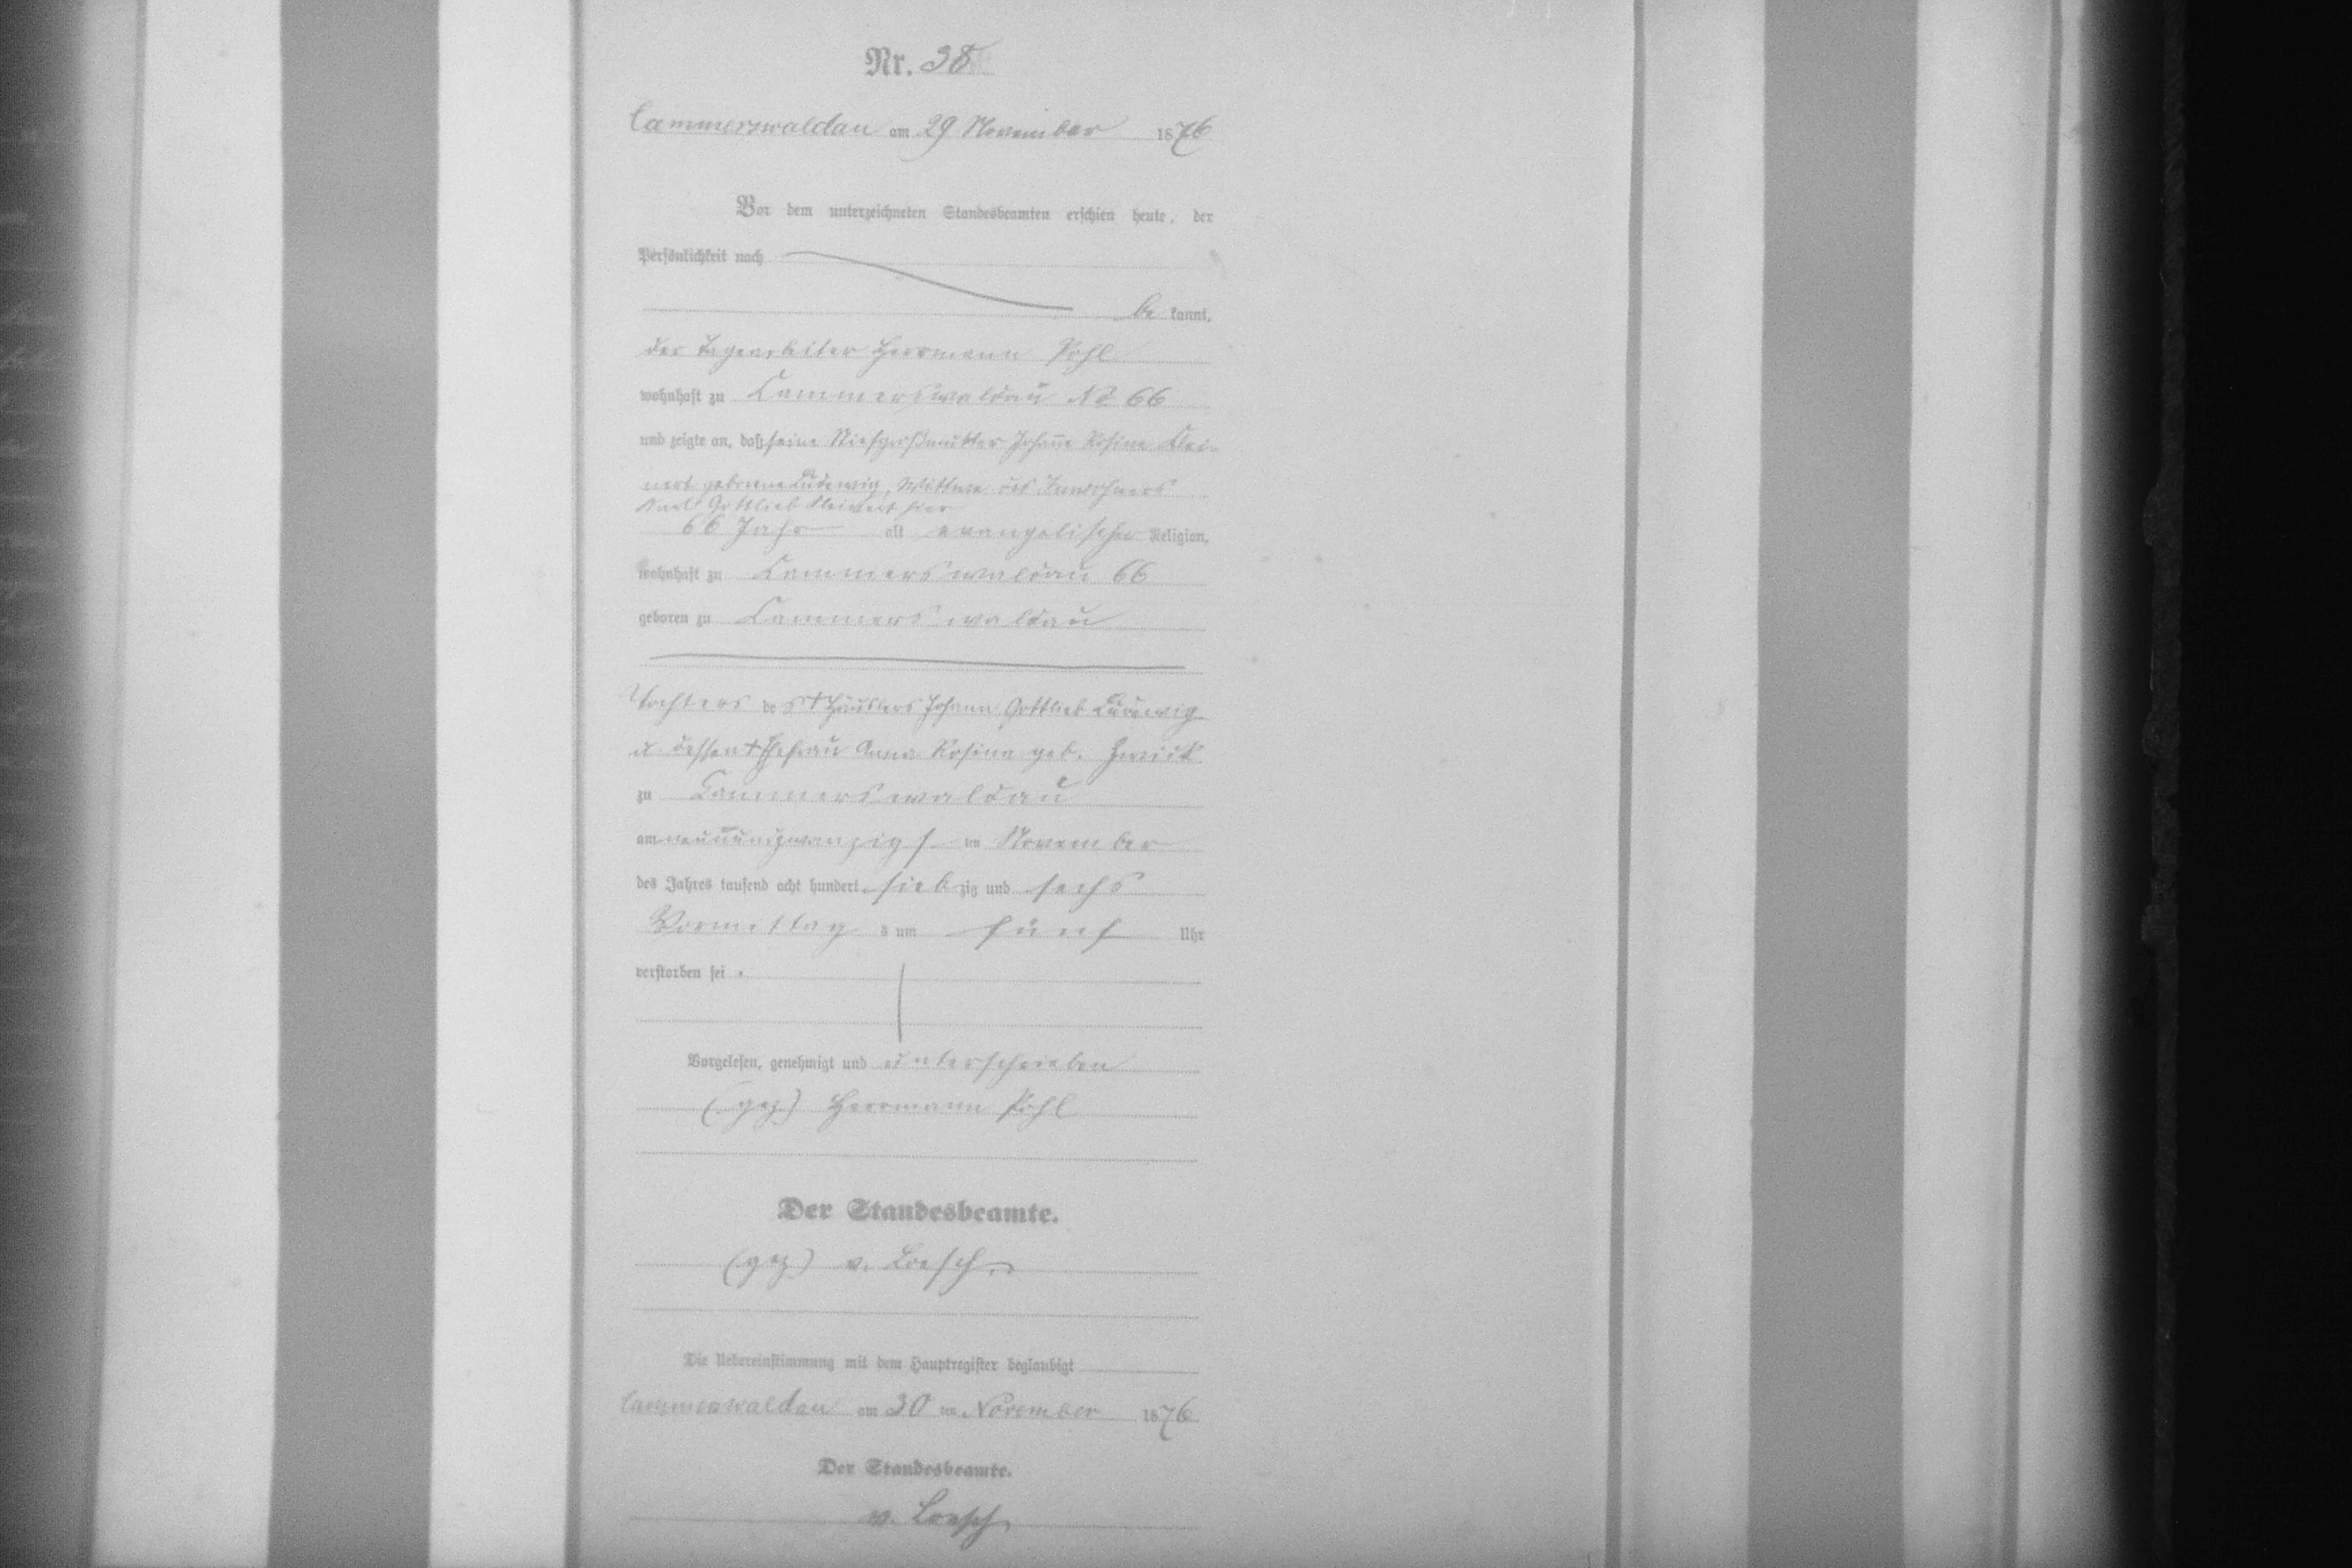 Nr. 38
Cammerswaldau am 29 November 1876
Vor dem unterzeichneten Standesbeamten erschien heute, der
Persönlichkeit nach
be kannt,
der Tagearbeiter Herrmann Pohl
wohnhaft zu Cammerswaldau No 66
und zeigte an, daß seine Stiefgroßmutter Johanne Rosine Klei-
nert geborene Ludewig, Wittwe des Inwohners
Karl Gottlieb Kleinert hier
66 Jahr alt evangelischer Religion,
wohnhaft zu Cammerswaldau 66
geboren zu Cammerswaldau
Tochter des † Häuslers Johann Gottlieb Ludewig
u dessen † Ehefrau Anna Rosina geb.
zu Cammerswaldau
am neunundzwanzigsten November
des Jahres tausend acht hundert siebzig und sechs
Vormittags um fünf Uhr
verstorben sei.
Vorgelesen, genehmigt und unterschrieben
(gez) Herrmann Pohl
Der Standesbeamte.
(gez) v. Loesch.
Die Uebereinstimmung mit dem Hauptregister beglaubigt
Cammerswaldau am 30 ten November 1876
Der Standesbeamte.
v. Loesch